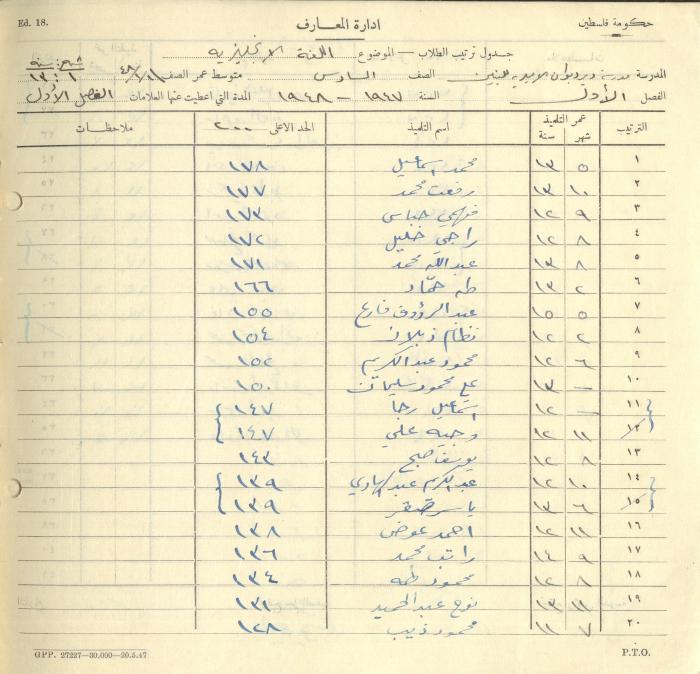 Ed. 18. ادارة المعارف حكومة فلسطين
جدول ترتيب الطلاب — الموضوع اللغة الانجليزية
المدرسة مدرسة الاميرية للبنين الصف السادس متوسط عمر الصف ١٣ : ١
الفصل الأول السنة ١٩٤٧ – ١٩٤٨ المدة التي اعطيت عنها العلامات الفصل الأول
الترتيب عمر التلميذ شهر سنة اسم التلميذ الحد الاعلى ٢٠٠ ملاحظات
١ ٥ ١٣ محمد اسماعيل ١٧٨
٢ ١٠ ١٣ رفعت محمد ١٧٧
٣ ٩ ١٢ فهمي عباس ١٧٣
٤ ٨ ١٢ راجي خليل ١٧٢
٥ ٨ ١٣ عبد الله محمد ١٧١
٦ ٢ ١٣ طه حمّاد ١٦٦
٧ ٥ ١٥ عبد الرؤوف فارع ١٥٥
٨ ٢ ١٢ نظام ١٥٤
٩ ٦ ١٢ محمود عبد الكريم ١٥٢
١٠ – ١٣ علي محمود سليمان ١٥٠
١١ – ١٢ اسماعيل رجا ١٤٧
١٢ ١١ ١٢ وجيه علي ١٤٧
١٣ ٨ ١٢ يوسف صبح ١٤٣
١٤ ١٠ ١٢ عبد الكريم عبد الهادي ١٣٩
١٥ ٦ ١٣ ياسر صقر ١٣٩
١٦ ١١ ١٢ احمد عوض ١٣٨
١٧ ٩ ١٤ راتب محمد ١٣٦
١٨ ٨ ١٢ محمود طه ١٣٤
١٩ ١١ ١٣ نوح عبد الحميد ١٣١
٢٠ ٧ ١١ محمود ذيب ١٢٨
G.P.P. 27227—30,000—20.5.47 P.T.O.